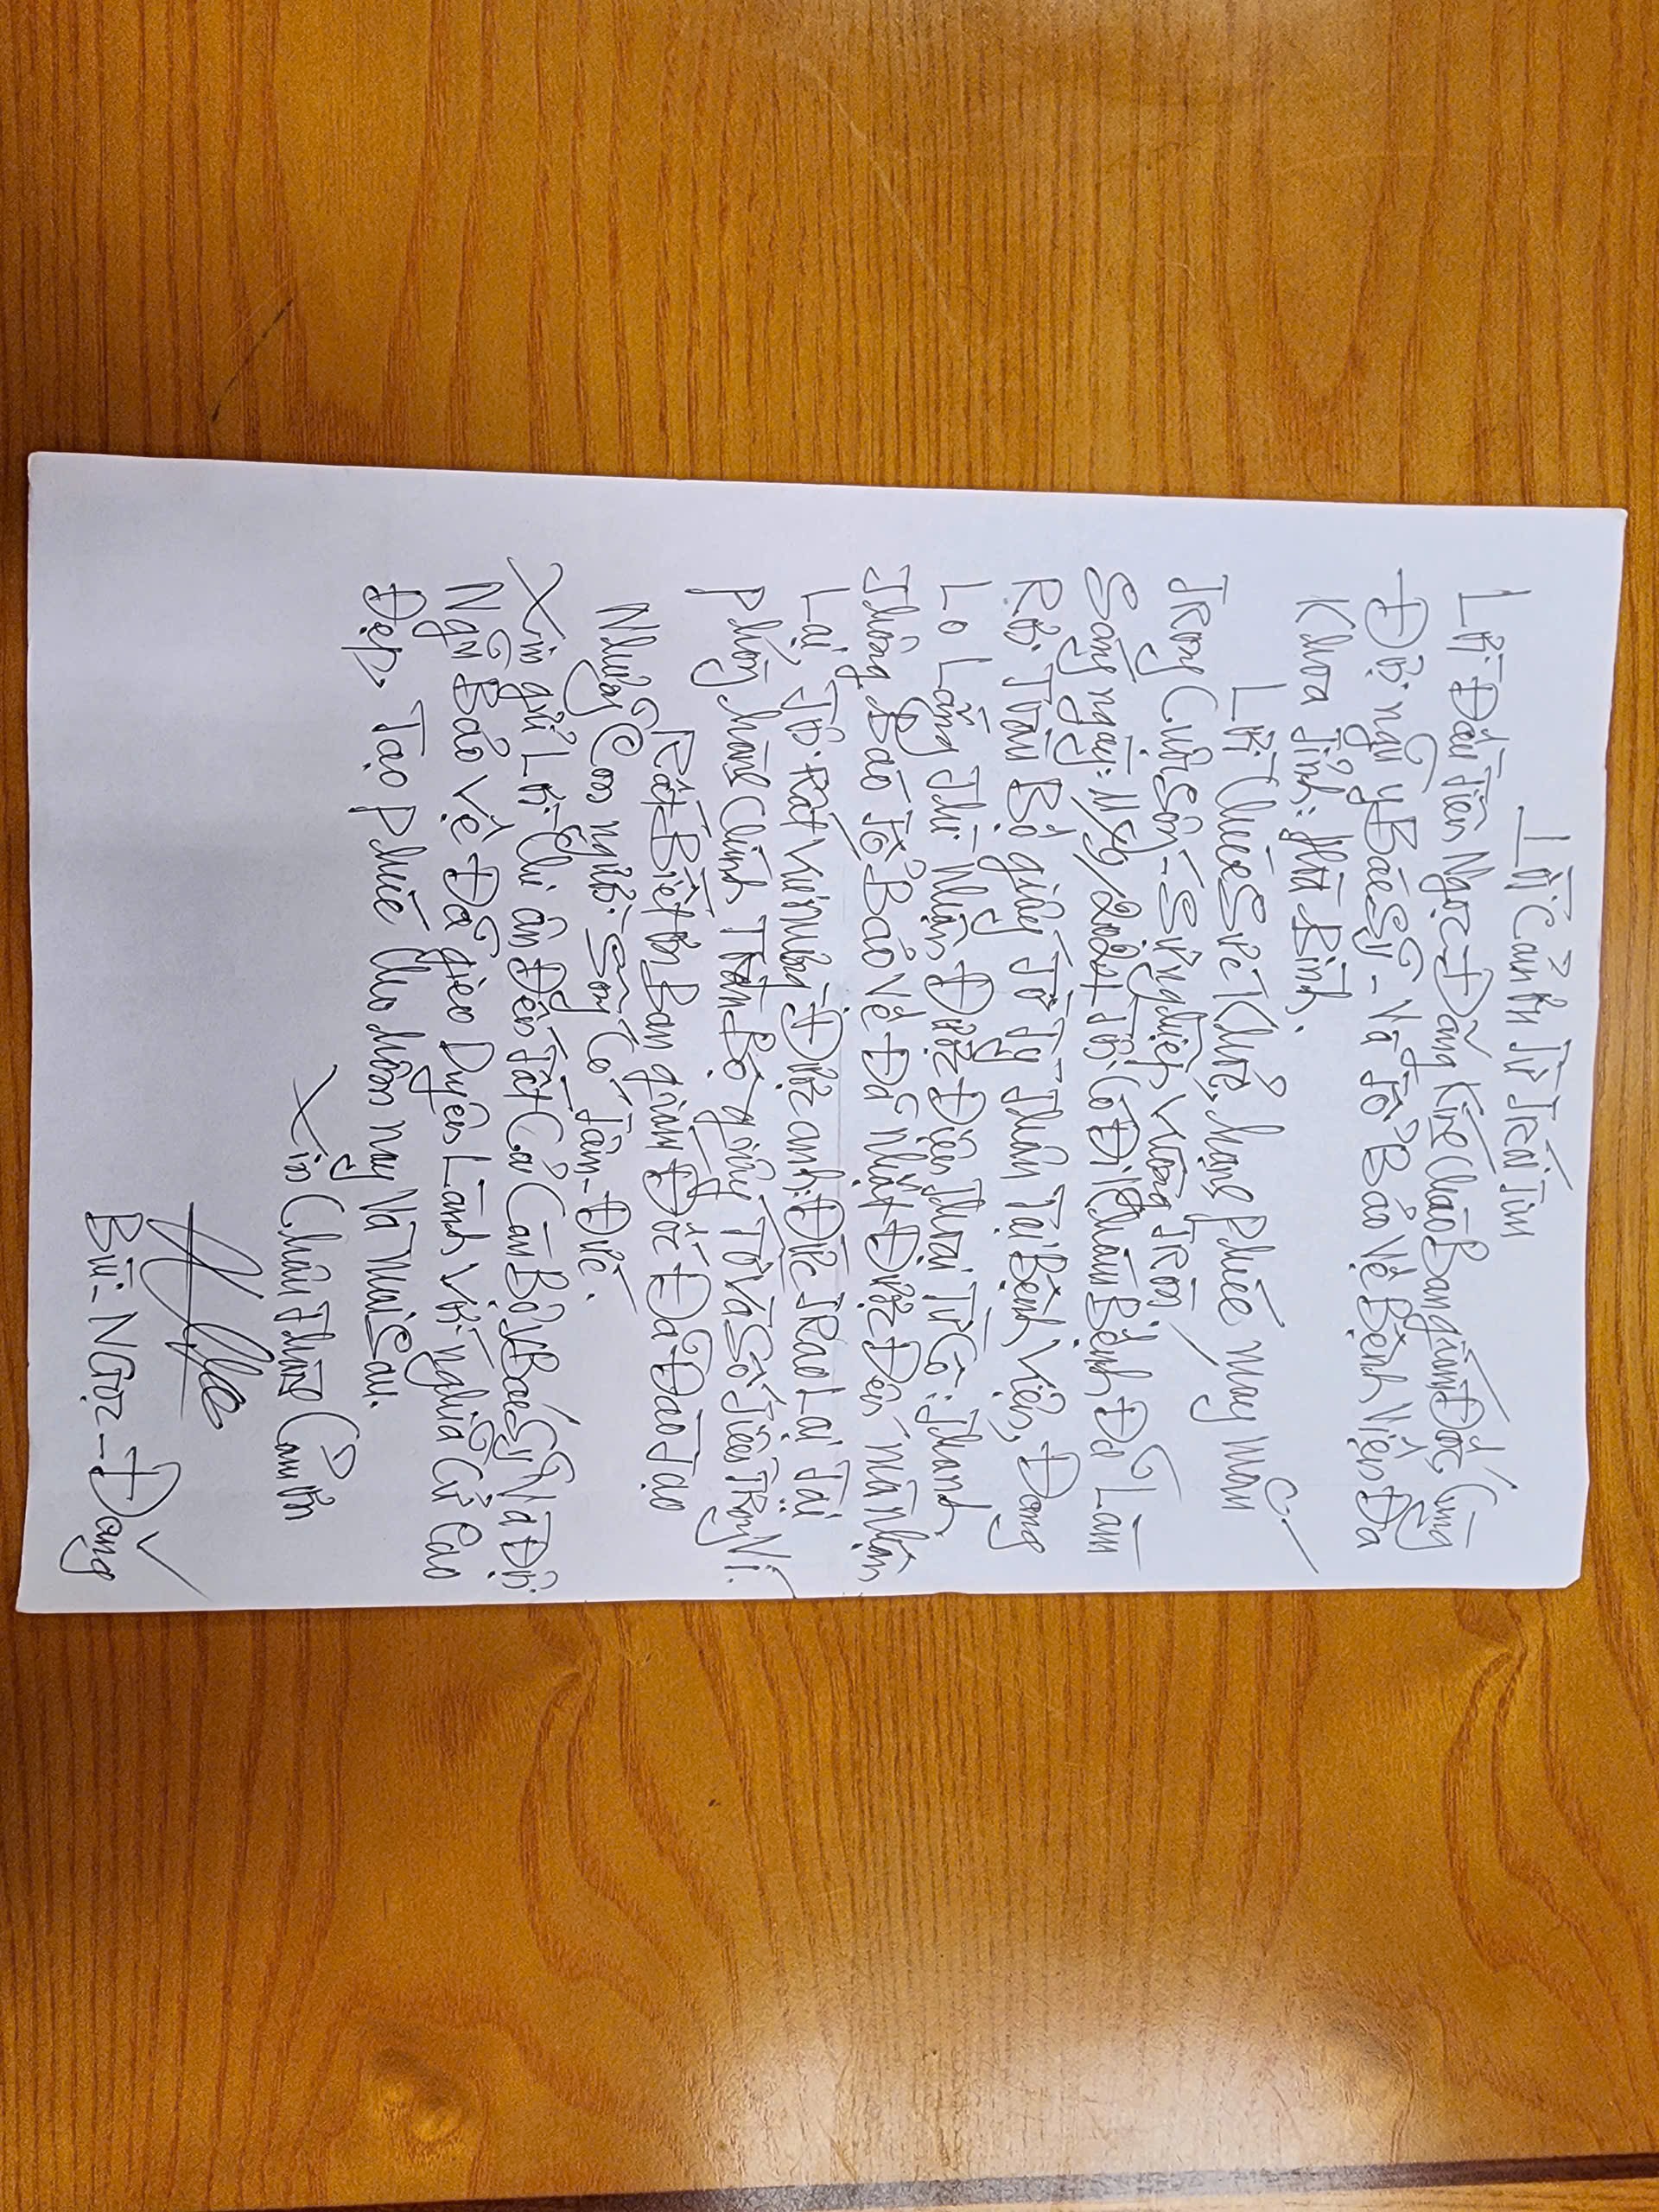 Lời Cảm ơn Từ Trái Tim
Lời Đầu Tiên Ngọc-Đăng Kính Chào Ban giám Đốc, Cùng
Đội ngũ y Bác Sỹ - Và Tổ Bảo Vệ Bệnh Viện Đa
Khoa Tỉnh: Hòa Bình.
Lời Chúc Sức Khỏe, hạng phúc may mắn
Trong Cuộc Sống - Sự nghiệp Vững Tròn
Sáng ngày: 11/9/2024 Tôi: Có Đi Khám Bệnh Đã Làm
Rơi Toàn Bộ giấy Tờ Tỳ Thân Tại Bệnh Viện, Đang
Lo Lắng Thì Nhận Được Điện Thoại Từ Cô: Thanh,
Thông Báo Tổ Bảo Vệ Đã Nhặt Được Đến Mà nhận
Lại, Tôi: Rất Vui mừng Được anh: Đức Trao Lại Tại
Phòng hành Chính Toàn Bộ giấy Tờ Và Số Tiền Trong Ví.
Rất Biết ơn Ban giám Đốc Đã Đào Tạo
Những Con người Sống Có Tâm - Đức.
Xin gửi Lời Chi ân Đến Tất Cả Cán Bộ Y Bác Sỹ Và Đội
Ngũ Bảo Vệ Đã gieo Duyên Lành Với nghĩa Cử Cao
Đẹp, Tạo Phúc Cho hôm nay Và Mai Sau.
Xin Chân Thành Cảm ơn
Bùi - Ngọc - Đăng